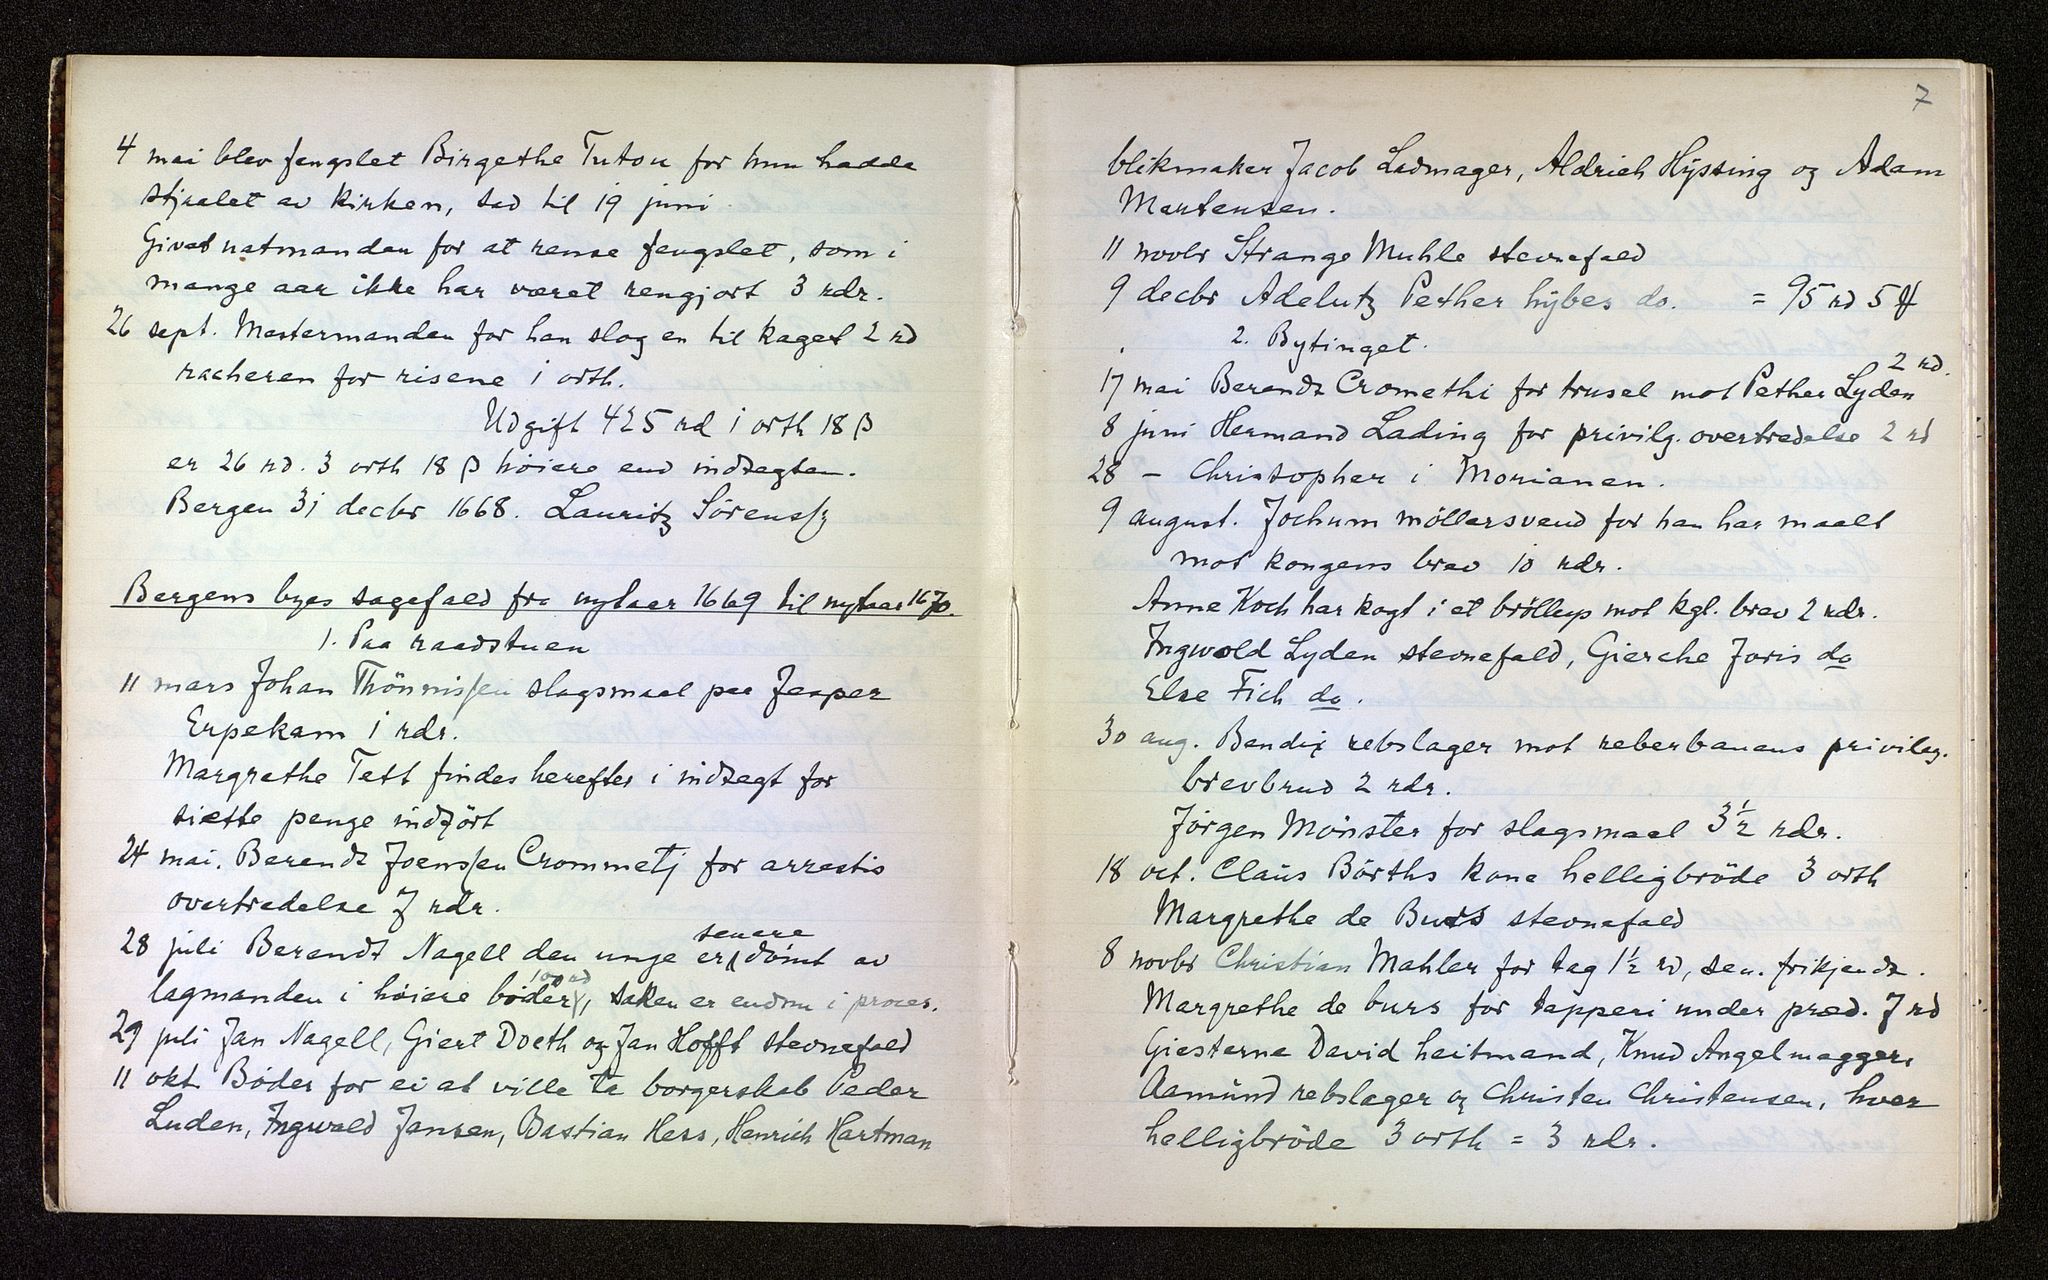 4 mai blev fengslet Birgethe Tuton for hun hadde
stjaalet av kirken, sad til 19 juni
Givet natmanden for at rense fengslet, som i
mange aar ikke har været rengjort 3 rdr.
26 sept. Mestermanden for han slog en til kaget 2 rd
racheren for risene 1 orth.
Udgift 425 rd 1 orth 18 β
er 26 rd. 3 orth 18 β høiere end indtegten.
Bergen 31 decbr 1668. Lauritz Sörenssz
Bergens byes sagefald fra nytaar 1669 til nytaar 1670.
1. Paa raadstuen
11 mars Johan Thönnissen slagsmaal paa Jesper
Erpekam 1 rdr.
Margrethe Tett findes herefter i indtegt for
siette penge indført
24 mai. Berendt Joenssen Crommetj for arrestis
overtredelse J rdr.
28 juli Berendt Nagell den unge er senere dømt av
lagmanden i høiere bøder 100 rd, saken er endnu i proces.
29 juli Jan Nagell, Giert Doeth og Jan Hofft stevnefald
11 okt Bøder for ei at ville ta borgerskab Peder
Luden, Ingwald Jansen, Bastian Hess, Henrich Hartman
7
blikmaker Jacob Ladmager, Aldrich Hÿssing og Adam
Martensen.
11 novbr Strange Muhle stevnefald
9 decbr Adelutz Pether hÿbes do. = 95 rd 5 β
2. Bytinget.
17 mai Berendt Cromethi for trusel mot Pether Lyden 2 rd.
8 juni Hermand Lading for privilg. overtredelse 2 rd
28 – Christopher i Morianen.
9 august. Jochum møllersvend for han har maalt
mot kongens brev 10 rdr.
Anne Koch har kogt i et bröllup mot kgl. brev 2 rdr.
Ingwold Lyden stevnefald, Gierche Joris do
Else Fich do.
30 aug. Bendix rebslager mot reberbanens privileg.
brevbrud 2 rdr.
Jørgen Mønster for slagsmaal 3½ rdr.
18 oct. Claüs Börths kone helligbröde 3 orth
Margrethe de Burs stevnefald
8 novbr Christian Mahler for tag 1½ rd, sen. frikjendt.
Margrethe de burs for tapperi under præd. J rd
Giesterne David heitmand, Knud Angelmagger,
Aamünd rebslager og Christen Christensen, hver
helligbröde 3 orth = 3 rdr.